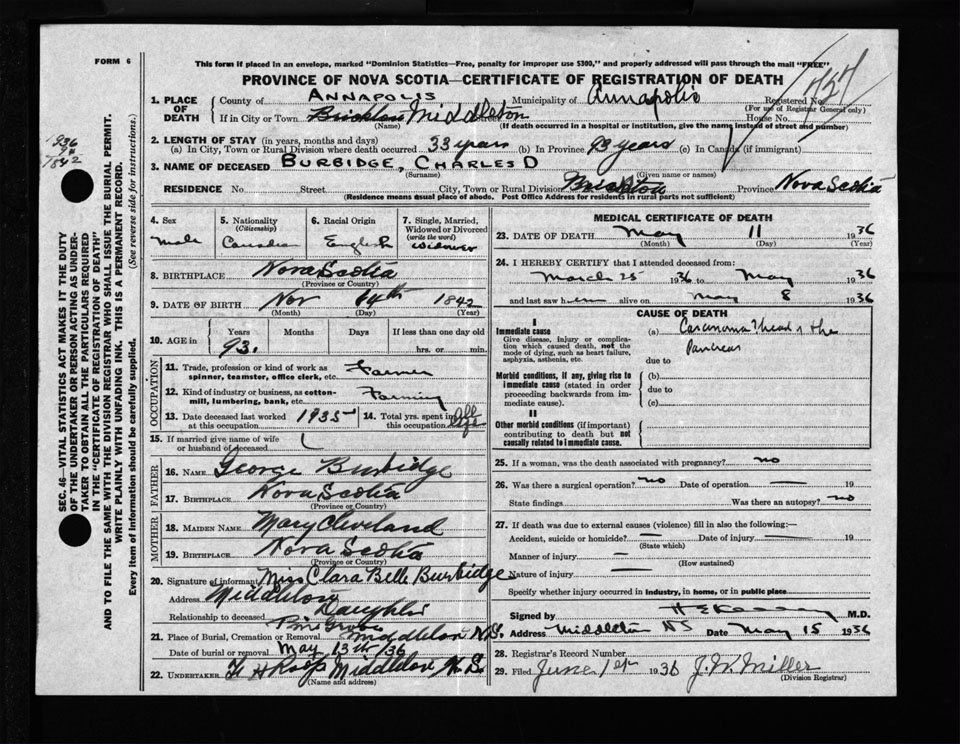 FORM 6
This form if placed in an envelope, marked "Dominion Statistics—Free, penalty for improper use $300," and properly addressed will pass through the mail "FREE"
PROVINCE OF NOVA SCOTIA—CERTIFICATE OF REGISTRATION OF DEATH
1. PLACE OF DEATH
County of ANNAPOLIS Municipality of Annapolis Registered No.
(For use of Registrar General only)
If in City or Town Brickton Middleton Street House No.
(Name) (If death occurred in a hospital or institution, give the name instead of street and number)
2. LENGTH OF STAY (in years, months and days)
(a) In City, Town or Rural Division where death occurred 33 years (b) In Province 93 years (c) In Canada (if immigrant)
3. NAME OF DECEASED BURBIDGE, CHARLES D
(Surname) (Given name or names)
RESIDENCE No. Street City, Town or Rural Division Brickton Province Nova Scotia
(Residence means usual place of abode. Post Office Address for residents in rural parts not sufficient)
4. Sex Male
5. Nationality (Citizenship) Canadian
6. Racial Origin English
7. Single, Married, Widowed or Divorced (write the word) Widower
8. BIRTHPLACE Nova Scotia
(Province or Country)
9. DATE OF BIRTH Nov 1842
(Month) (Day) (Year)
10. AGE in Years Months Days If less than one day old
93. hrs. or min.
OCCUPATION
11. Trade, profession or kind of work as spinner, teamster, office clerk, etc. Farmer
12. Kind of industry or business, as cotton-mill, lumbering, bank, etc. Farming
13. Date deceased last worked at this occupation 1935
14. Total yrs. spent in this occupation life
15. If married give name of wife or husband of deceased
FATHER
16. NAME George Burbidge
17. BIRTHPLACE Nova Scotia
(Province or Country)
MOTHER
18. MAIDEN NAME Mary Cleveland
19. BIRTHPLACE Nova Scotia
(Province or Country)
20. Signature of informant Miss Clara Belle Burbidge
Address Middleton
Relationship to deceased Daughter
21. Place of Burial, Cremation or Removal Pine Grove Middleton N.S.
Date of burial or removal May 13th /36
22. UNDERTAKER Middleton N.S.
(Name and address)
MEDICAL CERTIFICATE OF DEATH
23. DATE OF DEATH May 11 1936
(Month) (Day) (Year)
24. I HEREBY CERTIFY that I attended deceased from:
March 25 1936 to May 1936
and last saw him alive on May 8 1936
CAUSE OF DEATH
I
Immediate cause
Give disease, injury or complication which caused death, not the mode of dying, such as heart failure, asphyxia, asthenia, etc.
(a) head of the
Pancreas
due to
Morbid conditions, if any, giving rise to immediate cause (stated in order proceeding backwards from immediate cause).
(b)
due to
(c)
II
Other morbid conditions (if important) contributing to death but not causally related to immediate cause.
25. If a woman, was the death associated with pregnancy? no
26. Was there a surgical operation? no Date of operation — 19
State findings Was there an autopsy? no
27. If death was due to external causes (violence) fill in also the following:—
Accident, suicide or homicide? — Date of injury — 19
(State which)
Manner of injury —
(How sustained)
Nature of injury —
Specify whether injury occurred in industry, in home, or in public place
Signed by M.D.
Address Middleton NS Date May 15 1936
28. Registrar's Record Number
29. Filed June 1st 1936 J. W. Miller
(Division Registrar)
SEC. 46—VITAL STATISTICS ACT MAKES IT THE DUTY
OF THE UNDERTAKER OR PERSON ACTING AS UNDER-
TAKER TO OBTAIN ALL THE PARTICULARS REQUIRED
IN THE "CERTIFICATE OF REGISTRATION OF DEATH"
AND TO FILE THE SAME WITH THE DIVISION REGISTRAR WHO SHALL ISSUE THE BURIAL PERMIT.
WRITE PLAINLY WITH UNFADING INK. THIS IS A PERMANENT RECORD.
Every item of information should be carefully supplied. (See reverse side for instructions.)